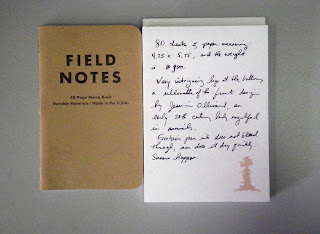 FIELD
NOTES
48-Page Memo Book
Durable Materials / Made in the U.S.A.
80 sheets of paper measuring
4.25 x 5.75, and the weight
is
Very intriguing logo at the bottom,
a silhouette of the front design
by Jessie
early 20th century lady
in
Fountain pen ink does not bleed
through, nor does it dry quickly